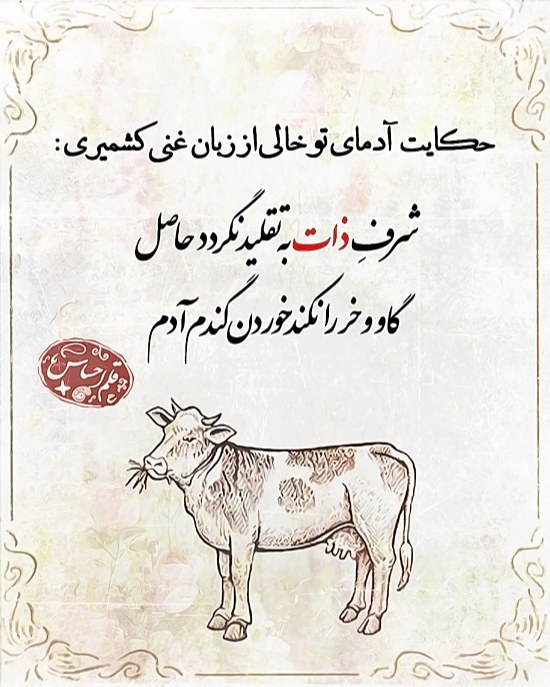 حکایت آدمای تو خالی از زبان غنی کشمیری :
شرفِ ذات به تقلید نگردد حاصل
گاو و خر را نکند خوردن گندم آدم
قلم احساس